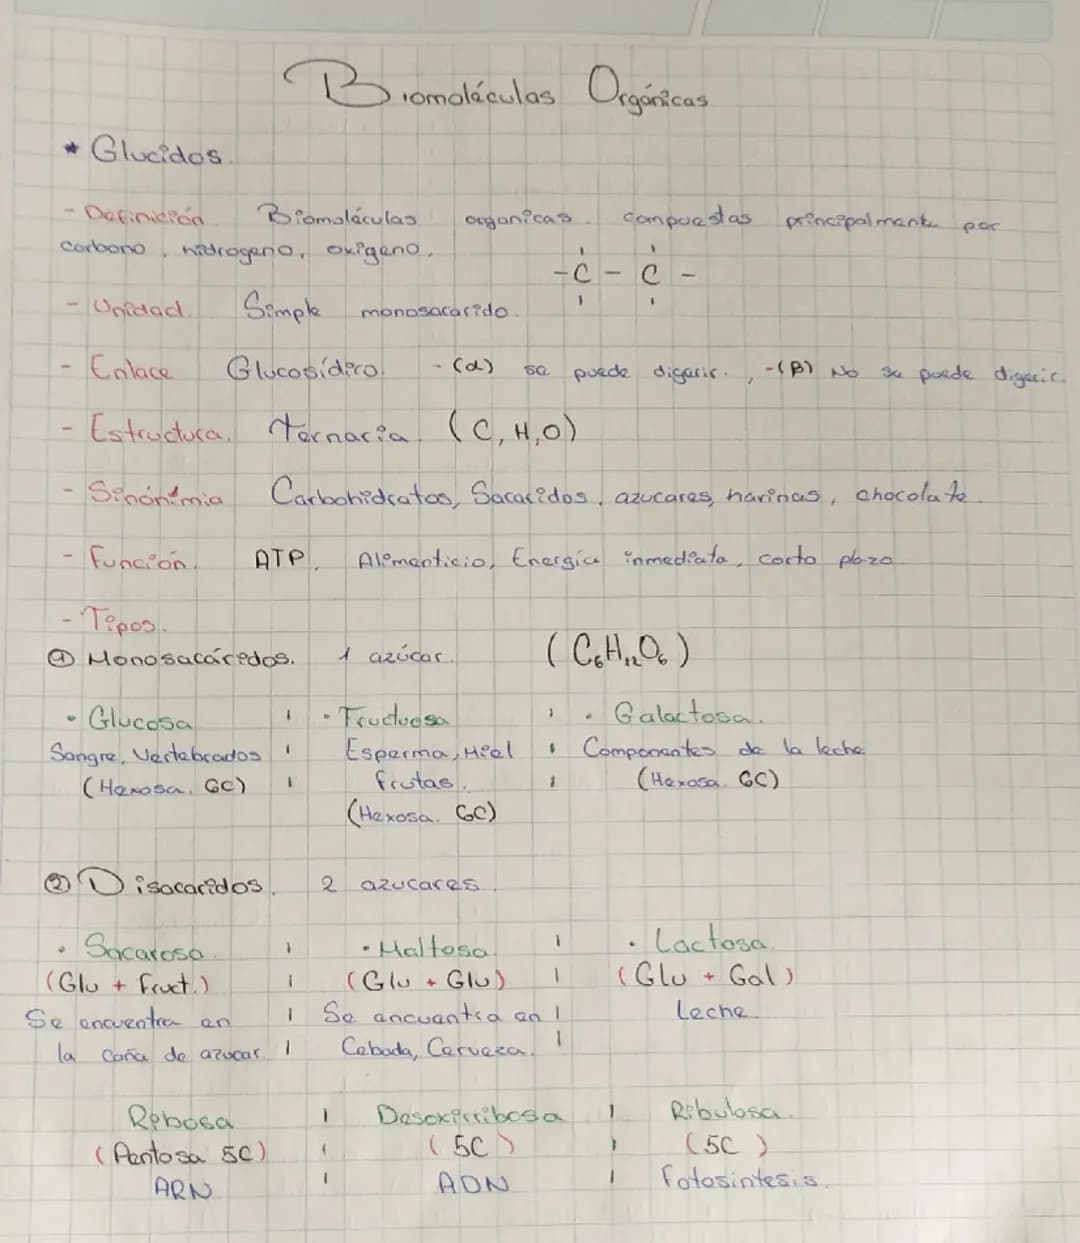 Biomoléculas Orgánicas
* Glucidos.
- Definición Biomoléculas organicas. compuestas principalmente por
carbono, hidrogeno, oxígeno.
- C - C -
- Unidad. Simple monosacarido.
- Enlace Glucosídero. - (α) se puede digerir., - (β) No se puede digerir.
- Estructura. Ternaria. (C, H, O)
- Sinónimia Carbohidratos, Sacaridos, azucares, harinas, chocolate.
- Función. ATP. Alimenticio, Energía inmediata, corto plazo.
- Tipos.
① Monosacáridos. 1 azúcar. (C₆H₁₂O₆)
• Glucosa • Fructuosa • Galactosa.
Sangre, Vertebrados Esperma, Miel Componentes de la leche
(Hexosa. 6C) frutas. (Hexosa. 6C)
(Hexosa. 6C)
② Disacaridos. 2 azucares.
• Sacarosa. • Maltosa. • Lactosa.
(Glu + Fruct.) (Glu + Glu) (Glu + Gal)
Se encuentra en Se encuentra en Leche.
la caña de azucar. Cebada, Cerveza.
Ribosa Desoxirribosa Ribulosa.
(Pentosa 5C) (5C) (5C)
ARN ADN Fotosintesis.